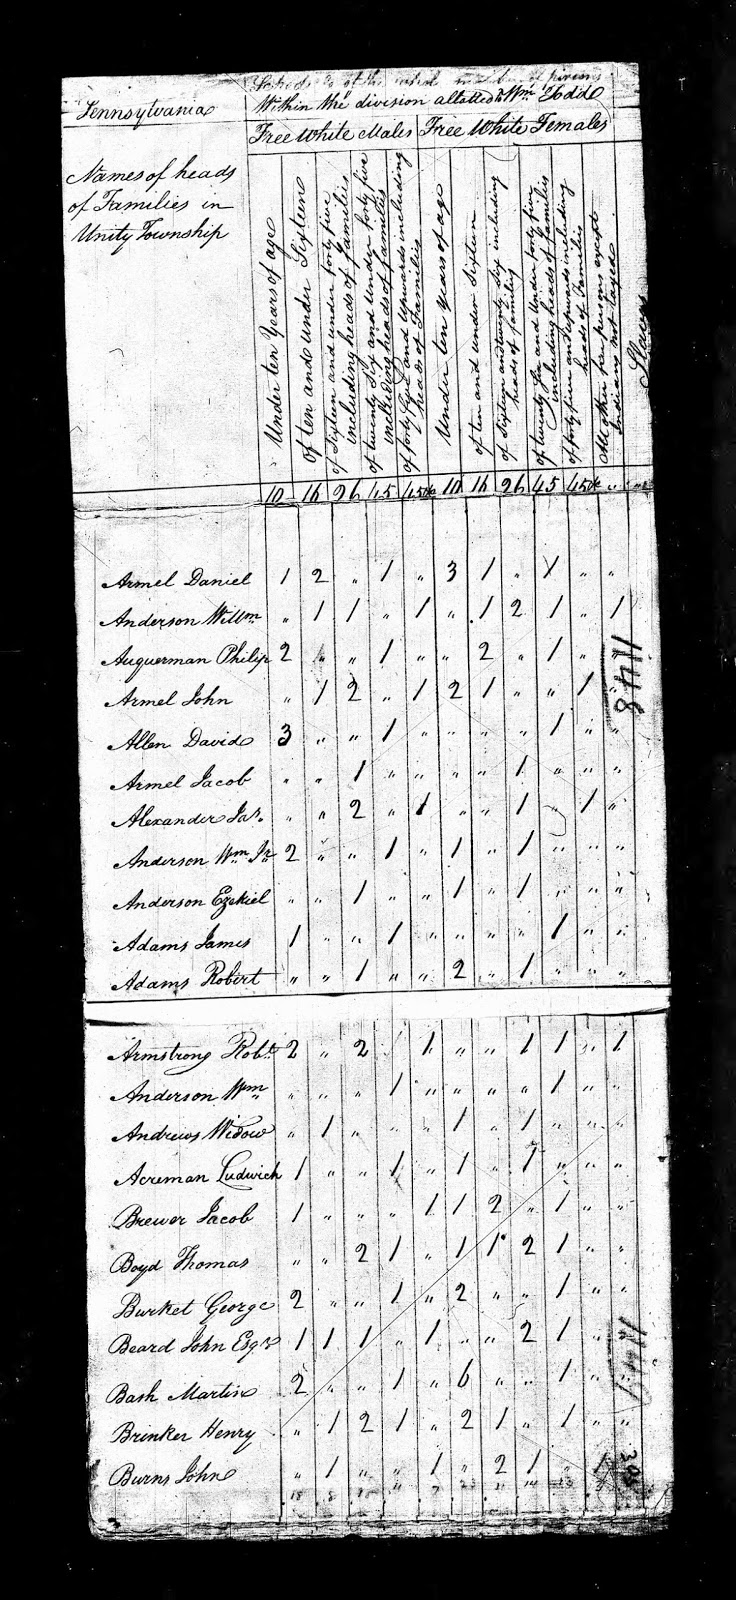 Schedule of the whole number of persons
Pennsylvania
Within the division allotted to Wm Todd
Free White Males Free White Females
Names of heads
of Families in
Unity Township
Under ten Years of age
of ten and under Sixteen
of Sixteen and under forty five including heads of families
of twenty Six and under forty five including heads of families
of forty five and upwards including heads of Families
Under ten years of age
of ten and under Sixteen
of Sixteen and twenty Six including heads of families
of twenty Six and under forty five including heads of families
of forty five and upwards including heads of Families
All other free persons except Indians not taxed
Slaves
10 16 26 45 45&c 10 16 26 45 45&c " "
Armel Daniel 1 2 " 1 " 3 1 " 1 " "
Anderson Willm " 1 1 " 1 " 1 2 1 " 1
Auguerman Philip 2 " " 1 " " 2 " 1 " "
1148
Armel John " 1 2 " 1 2 1 " " 1 "
Allen David 3 " " 1 " " " " 1 " "
Armel Jacob " " 1 " " " " 1 " " "
Alexander Jas. " " 2 " 1 " " 1 " 1 "
Anderson Wm Jr 2 " " 1 " 1 " 1 " " "
Anderson Ezekiel " " 1 " " 1 " 1 " " "
Adams James 1 " " 1 " " " " 1 " "
Adams Robert " " 1 " " 2 " 1 " " "
Armstrong Robt 2 " 2 " 1 " " 1 1 " 1
Anderson Wm " " " 1 " " " " 1 " "
Andrews Widow " 1 " " " 1 " 1 " " "
Acreman Ludwich 1 " " 1 " 1 " 1 " " "
Brewer Jacob 1 " " " 1 1 2 " 1 " "
Boyd Thomas " " 2 1 " 1 1 2 1 " "
Burket George 2 " " 1 " 2 " " 1 " "
Beard John Esqr 1 1 1 " 1 " " 2 1 " "
Bash Martin 2 " " 1 " 6 " " 1 " "
Brinker Henry " 1 2 1 " 2 1 " 1 " "
Burns John " 1 " " 1 " 2 1 " 1